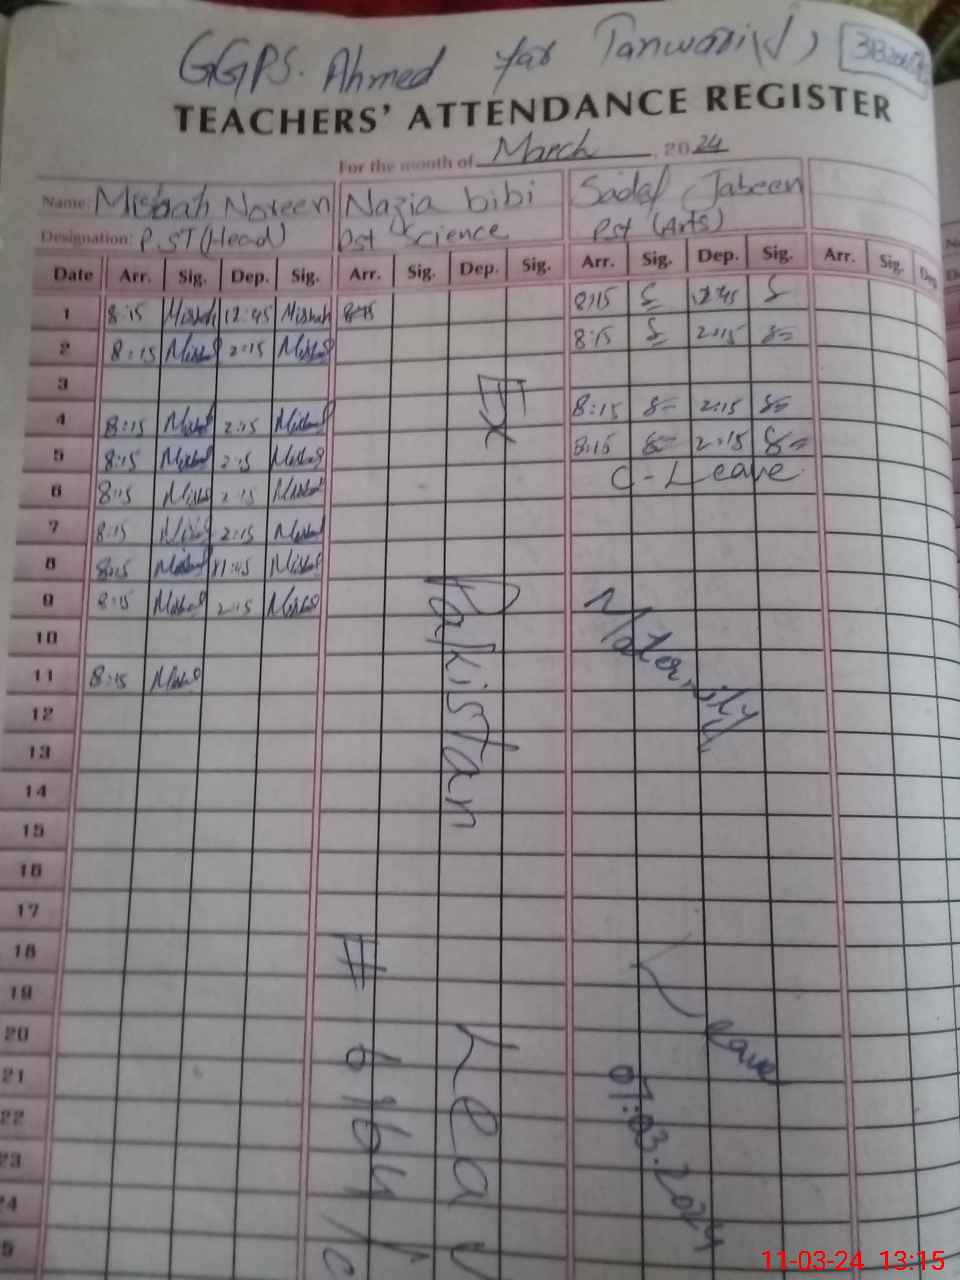 GGPS. Ahmed Yar Tanwari(J)
TEACHERS' ATTENDANCE REGISTER
For the month of March, 2024
Name: Misbah Noreen Nazia bibi Sadaf Jabeen
Designation: P.ST (Head) Pst Science Pst (Arts)
Date Arr. Sig. Dep. Sig. Arr. Sig. Dep. Sig. Arr. Sig. Dep. Sig. Arr. Sig. Dep
1 8:15 Misbah 12:45 Misbah 8:15 8:15 S 12:45 S
2 8:15 Misbah 2:15 Misbah 8:15 S 2:15 S
3
4 8:15 Misbah 2:15 Misbah 8:15 S 2:15 S
5 8:15 Misbah 2:15 Misbah 8:15 S 2:15 S
6 8:15 Misbah 2:15 Misbah C-Leave
7 8:15 Misbah 2:15 Misbah
8 8:15 Misbah 11:45 Misbah
9 8:15 Misbah 2:15 Misbah
10
11 8:15 Misbah
12
13
14
15
16
17
18
19
20
21
22
23
24
Ex Pakistan Leav
# 6164/c
Maternity Leave
07.03.2024
11-03-24 13:15